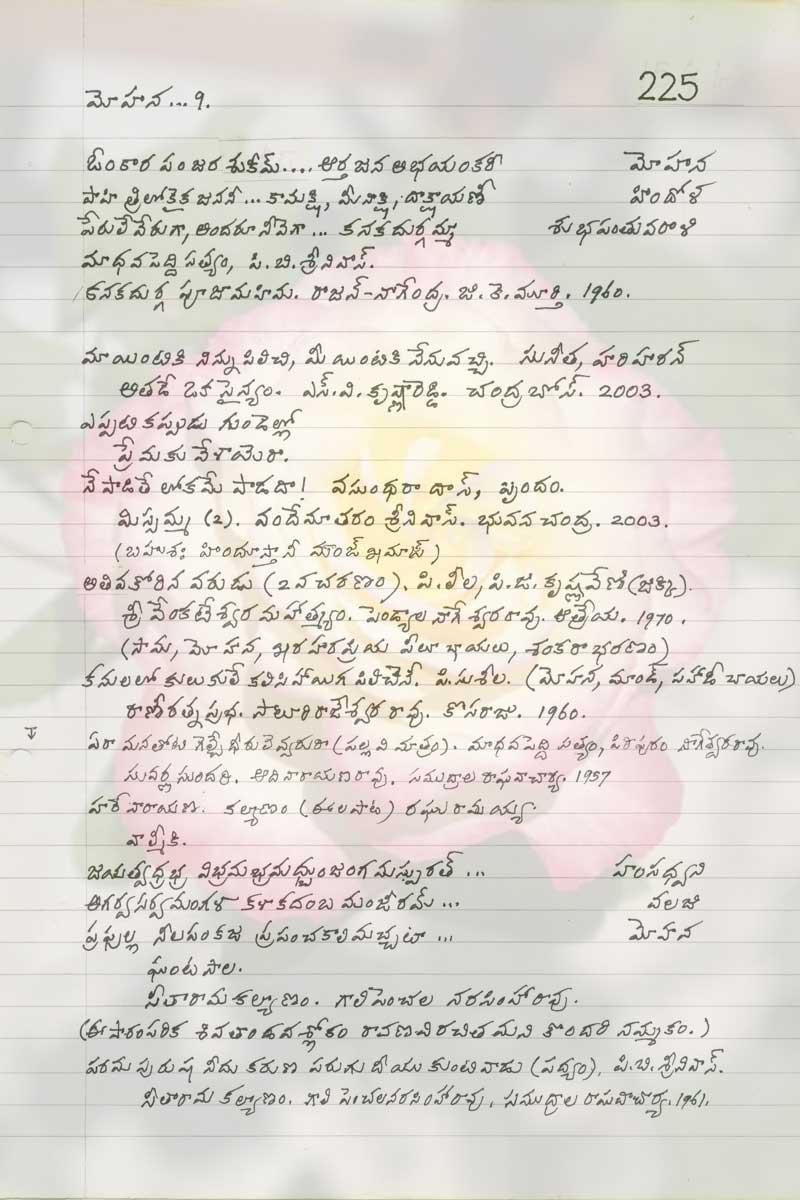 225
మోహన... 9.
ఓంకార పంజర శుకీమ్.... ఆర్తజన అభయంకరి మోహన
పాహి త్రిలోకైక జననీ... కామాక్షి, మీనాక్షి, దాక్షాయణీ హిందోళ
పేరులే వేరుగా, అందరూ నీవెగా... కనకదుర్గమ్మా శుభపంతువరాళి
మాధవపెద్ది సత్యం, పి.బి.శ్రీనివాస్.
కనకదుర్గ పూజామహిమ. రాజన్-నాగేంద్ర. జి.కె.మూర్తి. 1960.
మా యింటికి నిన్ను పిలిచి, మీ యింటికి నేనువచ్చి. సునీత, హరిహరన్
అతడే ఒక సైన్యం. ఎస్.వి.కృష్ణారెడ్డి. చంద్రబోస్. 2003.
ఎప్పటికప్పుడు గుండెల్లో
ప్రేమకు వేళాయెరా.
నే పాడితే లోకమే పాడదా! వసుంధరా దాస్, బృందం.
మిస్సమ్మ (2). వందేమాతరం శ్రీనివాస్. భువనచంద్ర. 2003.
(బహుశః హిందూస్తానీ మాంజ్ ఖమాజ్)
అతివకోరిన వరుడు (2వ చరణం). పి.లీల, పి.జి.కృష్ణవేణి (జిక్కి).
శ్రీ వేంకటేశ్వర మహాత్మ్యం. పెండ్యాల నాగేశ్వరరావు. ఆత్రేయ. 1970.
(సామ, మోహన, ఖరహరప్రియ పీలూ ఛాయలు, శంకరాభరణం)
కనులలో కులుకులే కలిసి హాయిగ పిలిచెనే. పి.సుశీల. (మోహన, మాండ్, పహాడీ ఛాయలు)
రాణీ రత్నప్రభ. సాలూరి రాజేశ్వరరావు. కొసరాజు. 1960.
ఏరా మనతోటి గెల్చే ధీరులెవ్వరురా (పల్లవి మాత్రం). మాధవపెద్ది సత్యం, పిఠాపురం నాగేశ్వరరావు.
సువర్ణ సుందరి. ఆదినారాయణరావు. సముద్రాల రాఘవాచార్య. 1957
హరే నారాయణ. కల్యాణం (ఈలపాట) రఘురామయ్య.
వాల్మీకి.
జయత్వదభ్ర విభ్రమభ్రమద్భుజంగమస్ఫురత్... హంసధ్వని
అగర్వసర్వమంగళా కళాకదంబ మంజరీమ్... వలజి
ప్రఫుల్ల నీలపంకజ ప్రపంచకాలిమచ్ఛటా... మోహన
ఘంటసాల.
సీతారామకల్యాణం. గాలి పెంచల నరసింహారావు.
(ఈ పారంపరిక శివతాండవశ్లోకం రావణవిరచితమని కొందరి నమ్మకం.)
పరమ పురుష నీదు కరుణ (పద్యం), పి.బి.శ్రీనివాస్.
సీతారామ కల్యాణం. గాలి పెంచలనరసింహారావు. సముద్రాల రాఘవాచార్య. 1961.